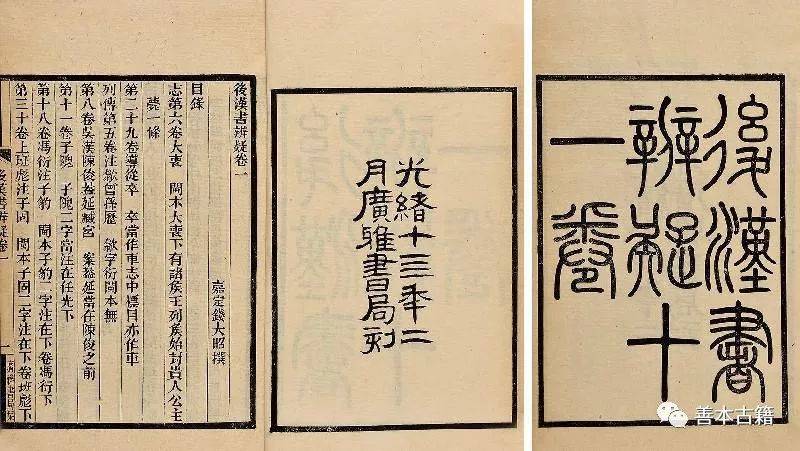 後漢書
辨疑十
一卷
光緒十三年二
月廣雅書局刻
後漢書辨疑卷一
嘉定錢大昭撰
目錄
志第六卷大喪 閩本大喪下有諸侯王列侯始封貴人公主
薨一條
第二十九卷導從卒 卒當作車志中標目亦作車
列傳第五卷注歙曾孫歷 歙字衍閩本無
第八卷吳漢陳俊蓋延臧宮 案蓋延當在陳俊之前
第十一卷子隗 子隗二字當注在任光下
第十八卷馮衍注子豹 閩本子豹二字注在下卷馮衍下
第三十卷上班彪注子固 閩本子固二字注在下卷班彪下
後漢書辨疑卷一
善本古籍